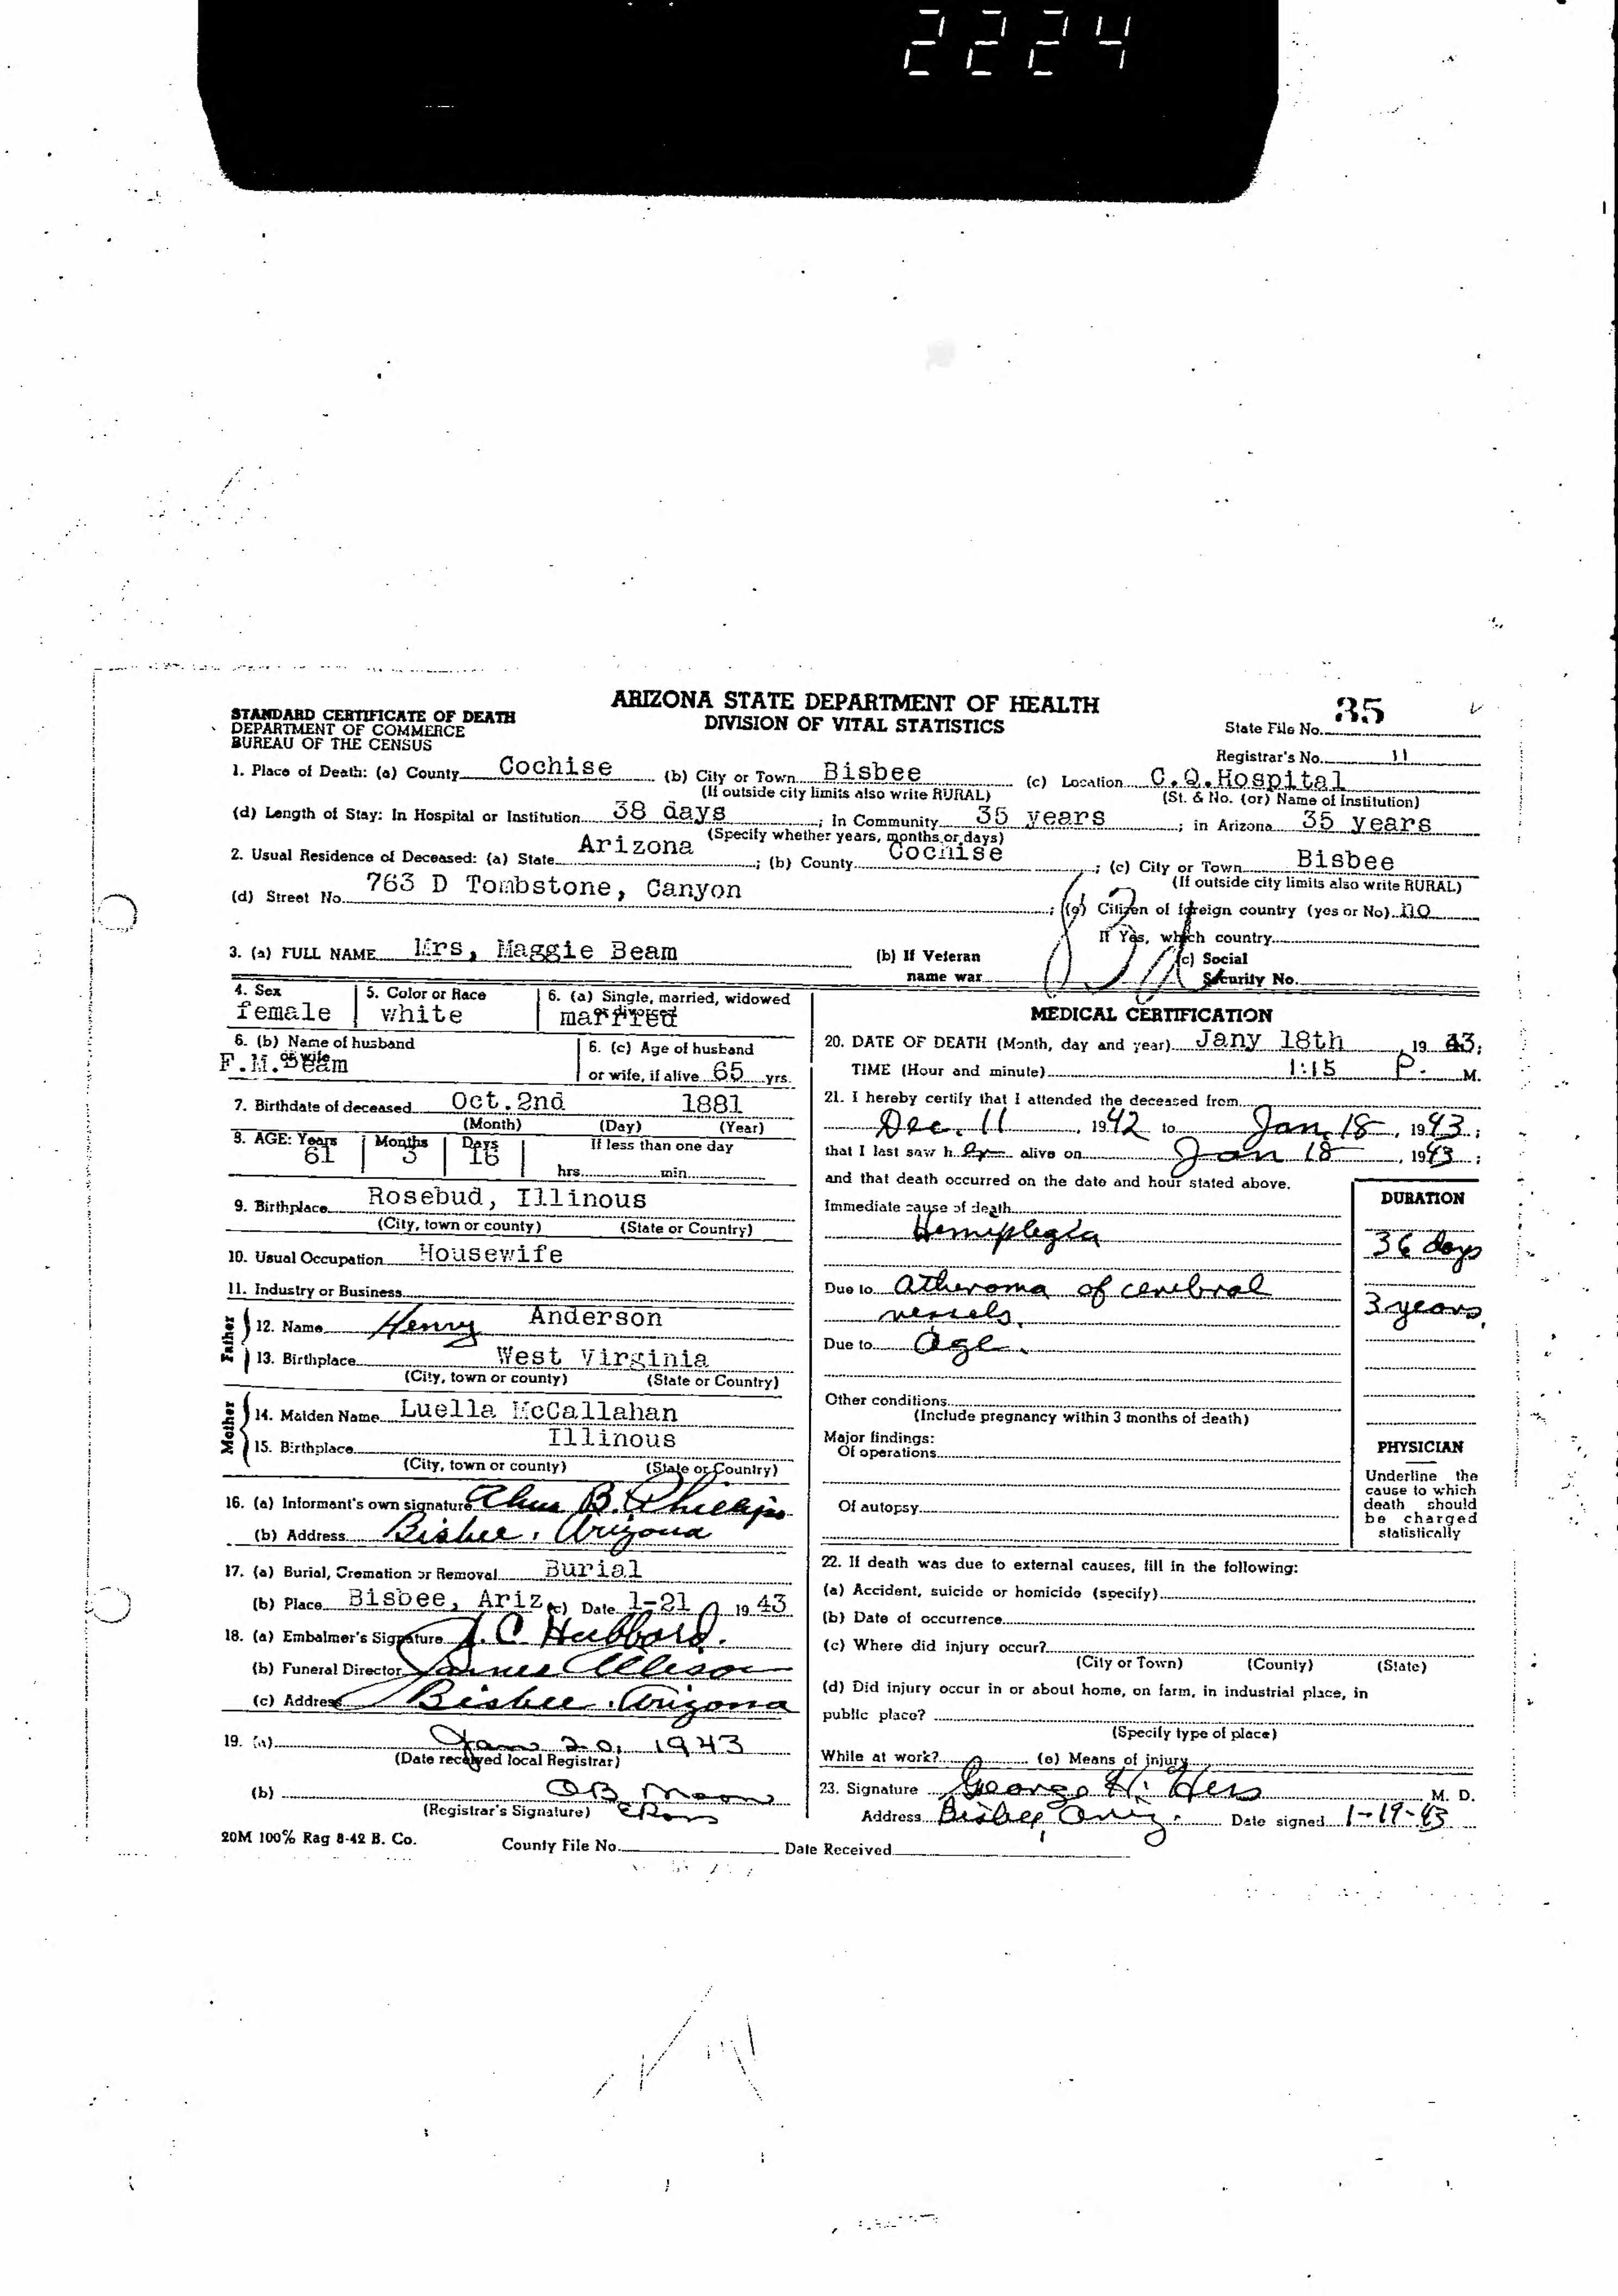 2224
ARIZONA STATE DEPARTMENT OF HEALTH
DIVISION OF VITAL STATISTICS
STANDARD CERTIFICATE OF DEATH
DEPARTMENT OF COMMERCE
BUREAU OF THE CENSUS
State File No. 35
Registrar's No. 11
1. Place of Death: (a) County Cochise (b) City or Town Bisbee (c) Location C.Q.Hospital
(If outside city limits also write RURAL) (St. & No. (or) Name of Institution)
(d) Length of Stay: In Hospital or Institution 38 days ; In Community 35 years ; in Arizona 35 years
(Specify whether years, months or days)
2. Usual Residence of Deceased: (a) State Arizona ; (b) County Cochise ; (c) City or Town Bisbee
(If outside city limits also write RURAL)
(d) Street No. 763 D Tombstone, Canyon ; (e) Citizen of foreign country (yes or No) no
If Yes, which country
3. (a) FULL NAME Mrs, Maggie Beam (b) If Veteran name war (c) Social Security No.
4. Sex female
5. Color or Race white
6. (a) Single, married, widowed or divorced married
6. (b) Name of husband or wife F.M. Beam
6. (c) Age of husband or wife, if alive 65 yrs.
7. Birthdate of deceased Oct. 2nd 1881
(Month) (Day) (Year)
8. AGE: Years 61 Months 3 Days 16 If less than one day
hrs. min.
9. Birthplace Rosebud, Illinous
(City, town or county) (State or Country)
10. Usual Occupation Housewife
11. Industry or Business
Father
12. Name Henry Anderson
13. Birthplace West Virginia
(City, town or county) (State or Country)
Mother
14. Maiden Name Luella McCallahan
15. Birthplace Illinous
(City, town or county) (State or Country)
16. (a) Informant's own signature B.
(b) Address Bisbee, Arizona
17. (a) Burial, Cremation or Removal Burial
(b) Place Bisbee, Ariz (c) Date 1-21 1943
18. (a) Embalmer's Signature C. Hubbard.
(b) Funeral Director
(c) Address Bisbee, Arizona
19. (a) Jan 20, 1943
(Date received local Registrar)
(b) OB
(Registrar's Signature)
MEDICAL CERTIFICATION
20. DATE OF DEATH (Month, day and year) Jany 18th , 19 43;
TIME (Hour and minute) 1:15 P. M.
21. I hereby certify that I attended the deceased from
Dec. 11 , 1942 to Jan. 18 , 1943;
that I last saw her alive on Jan 18 , 1943;
and that death occurred on the date and hour stated above.
DURATION
Immediate cause of death
Hemiplegia 36 days
Due to Atheroma of cerebral
vessels. 3 years,
Due to Age.
Other conditions
(Include pregnancy within 3 months of death)
Major findings:
Of operations
Of autopsy
PHYSICIAN
Underline the
cause to which
death should
be charged
statistically
22. If death was due to external causes, fill in the following:
(a) Accident, suicide or homicide (specify)
(b) Date of occurrence
(c) Where did injury occur?
(City or Town) (County) (State)
(d) Did injury occur in or about home, on farm, in industrial place, in
public place?
(Specify type of place)
While at work? (e) Means of injury
23. Signature George H. Hess M. D.
Address Bisbee Ariz. Date signed 1-19-43
20M 100% Rag 8-42 B. Co. County File No. Date Received